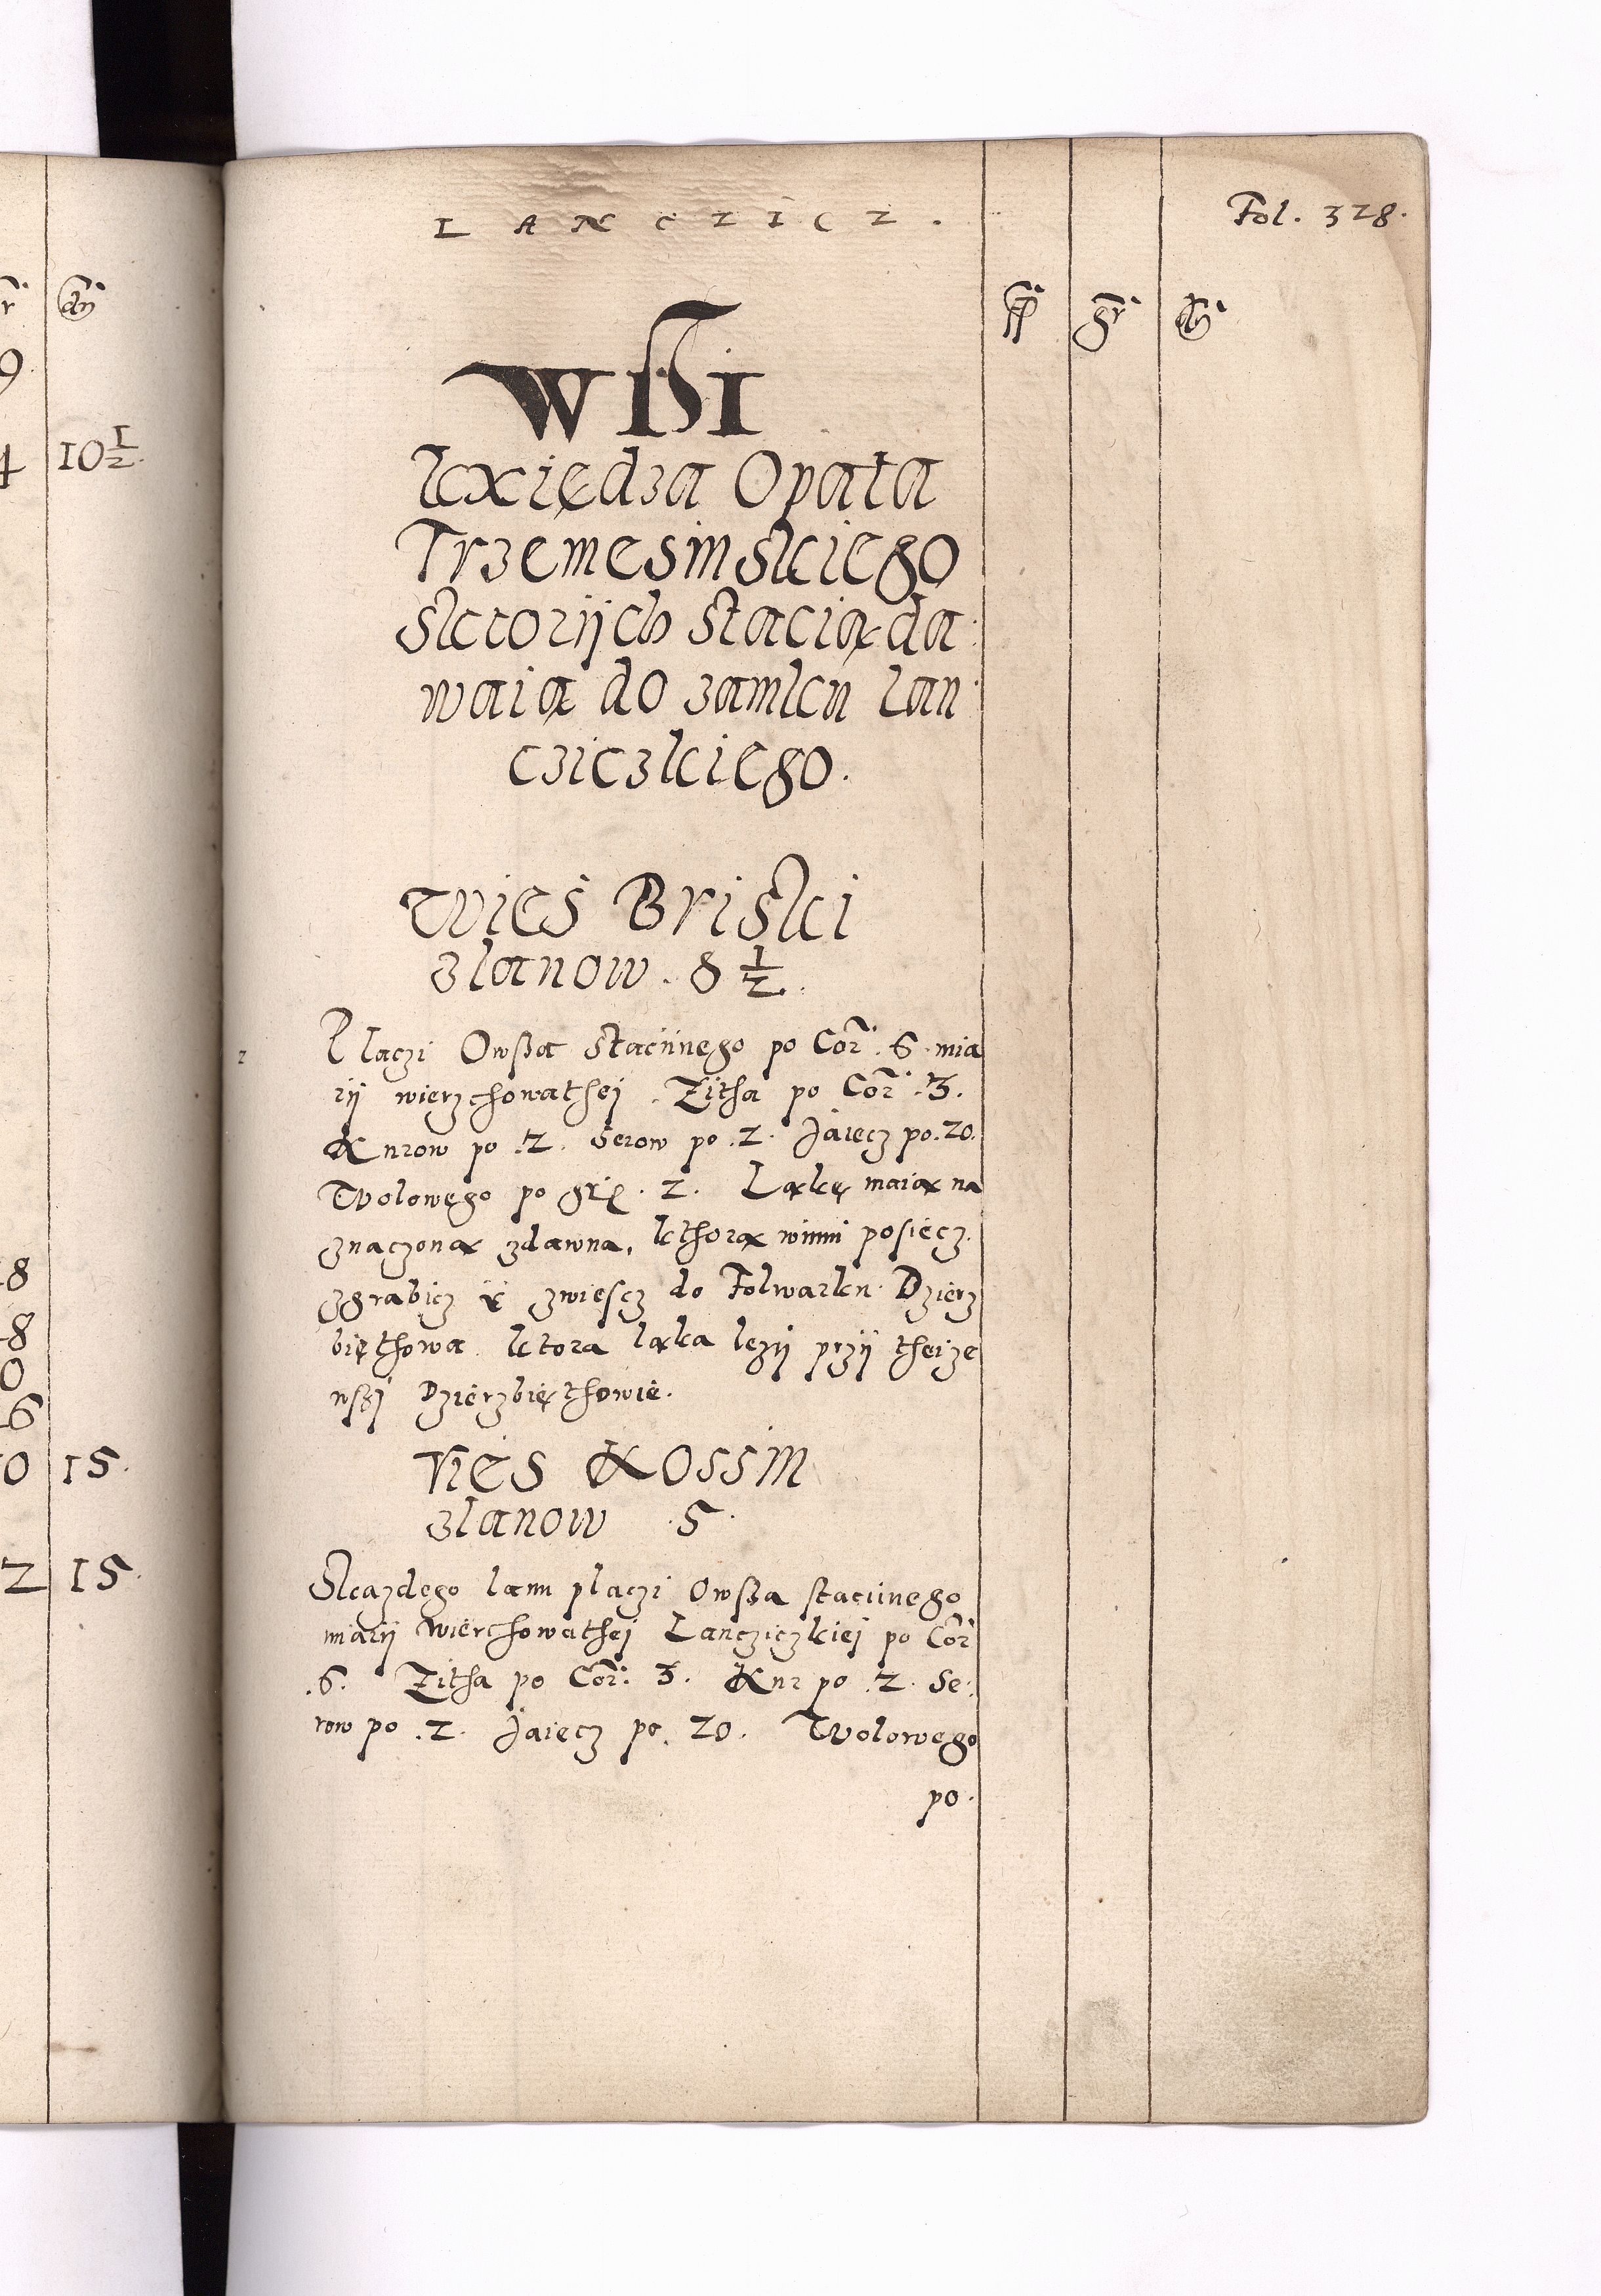 LANCZICZ.
Fol. 328.
gr
Wsi
kxiędza Opata
Trzemesinskiego
sktorÿch stacią da:
waią do zamku Lan:
cziczkiego.
Wieś Briski
złanow. 8 1/2.
Płaczi Owßa stacÿnego po Cor. 6. mia
rÿ wierzchowathej. Zitha po Cor. 3.
Kurow po .2. Serow po .2. Jaiecz po. 20.
Wolowego po grz. 2. Ląkę maią na
znaczoną zdawna, kthorą winni posiecz.
zgrabicz ÿ zwiescz do Folwarku Dzierz
biethowa. ktora ląka lezÿ przÿ theize
wßj Dzierzbięthowie.
Wieś Kossin
złanow .5.
Skazdego lanu placzi Owßa stacÿnego
miarÿ wierchowathej Lancziczkiej po Cor
.6. Zitha po Cor: 3. Kur po .2. Se:
row po .2. Jaiecz po. 20. Wolowego
po.
10 1/2.
8
8
0
6
0 15.
2 15.